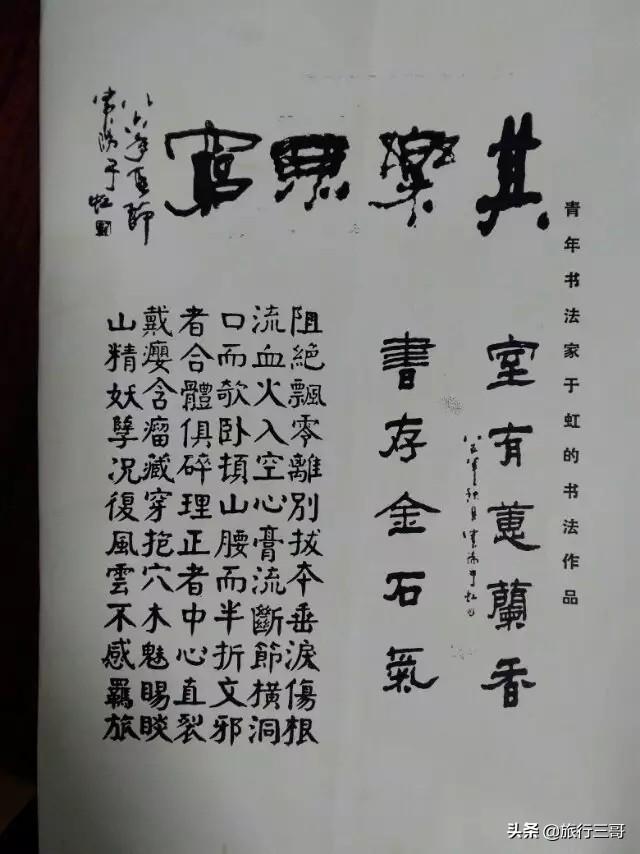 青年书法家于虹的书法作品
其樂無窮
室有蕙蘭香
書存金石氣
阻絕飄零離別拔本垂淚傷根
流血火入空心膏流斷節橫洞
口而欹卧頓山腰而半折文邪
者合體俱碎理正者中心直裂
戴癭含瘤藏穿抱穴木魅賜睒
山精妖孽况復風雲不感羈旅
头条 @旅行三哥